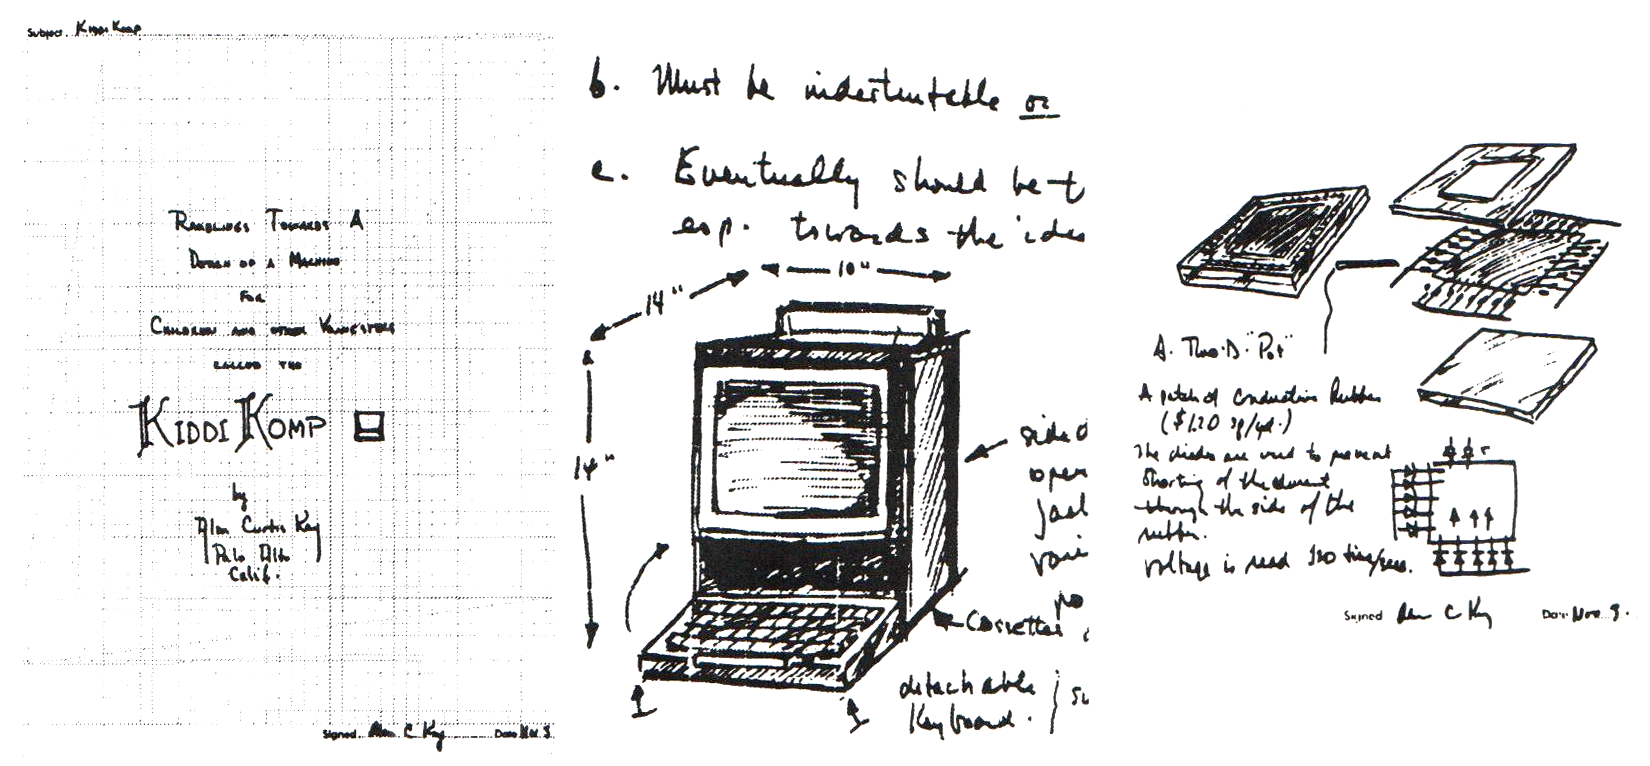 Subject KiddiKomp
Ramblings Towards A
Design of a Machine
For
Children and other Youngsters
called the
KIDDI KOMP
by
Alan Curtis Kay
Palo Alto
Calif.
Signed Alan C Kay Date Nov. 3
b. Must be or
c. Eventually should be t
esp. towards the idea
10"
14"
&
14"
side o
open
jack
vari
po
Cassettes
detachable
Keyboard.
A. Two·D. "Pot"
A patch of Conductive Rubber
($1.20 sq/yd.)
The diodes are used to prevent
Shorting of the current
through the side of the
rubber.
voltage is read 120 times/sec.
Signed Alan C Kay Date Nov. 3.